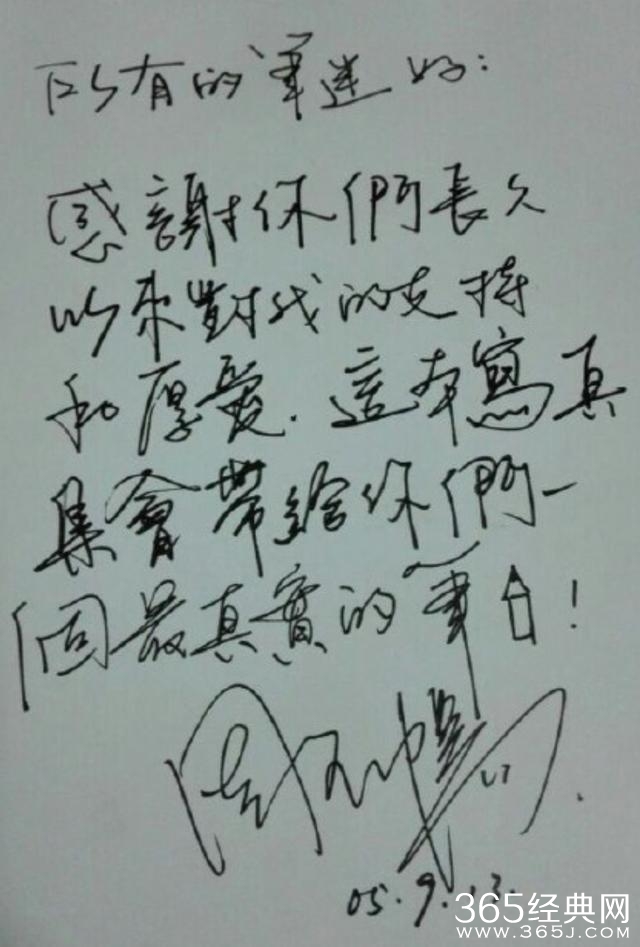 所有的筆迷好：
感謝你們長久
以來對我的支持
和厚愛.這本寫真
集會帶給你們一
個最真實的筆
05.9.13.
365经典网
WWW.365J.COM